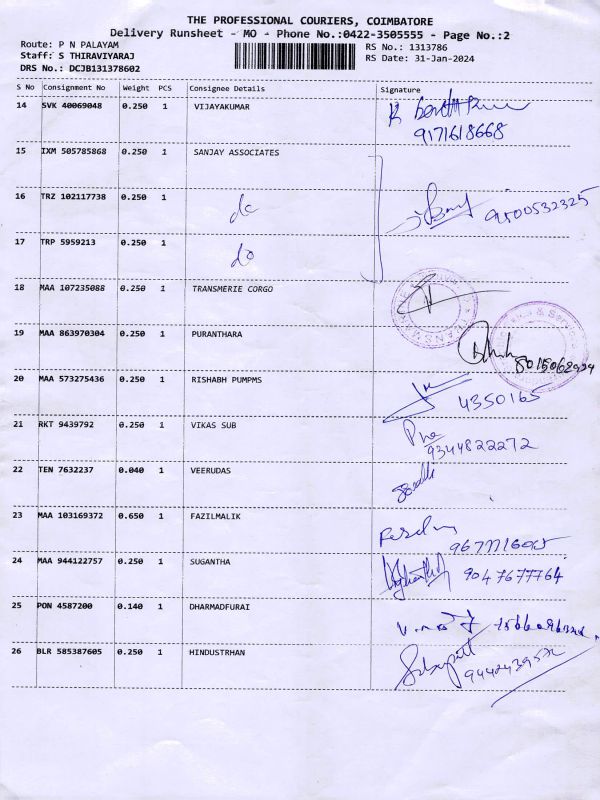 THE PROFESSIONAL COURIERS, COIMBATORE
Delivery Runsheet - MO - Phone No.:0422-3505555 - Page No.:2
Route: P N PALAYAM
Staff: S THIRAVIYARAJ
DRS No.: DCJB131378602
RS No.: 1313786
RS Date: 31-Jan-2024
S No Consignment No Weight PCS Consignee Details Signature
14 SVK 40069048 0.250 1 VIJAYAKUMAR
9171618668
15 IXM 505785868 0.250 1 SANJAY ASSOCIATES
16 TRZ 102117738 0.250 1 do 9500532325
17 TRP 5959213 0.250 1 do
18 MAA 107235088 0.250 1 TRANSMERIE CORGO
19 MAA 863970304 0.250 1 PURANTHARA
20 MAA 573275436 0.250 1 RISHABH PUMPMS 4350165
21 RKT 9439792 0.250 1 VIKAS SUB
9344822272
22 TEN 7632237 0.040 1 VEERUDAS
23 MAA 103169372 0.650 1 FAZILMALIK
24 MAA 944122757 0.250 1 SUGANTHA 9047677764
25 PON 4587200 0.140 1 DHARMADFURAI
26 BLR 585387605 0.250 1 HINDUSTRHAN